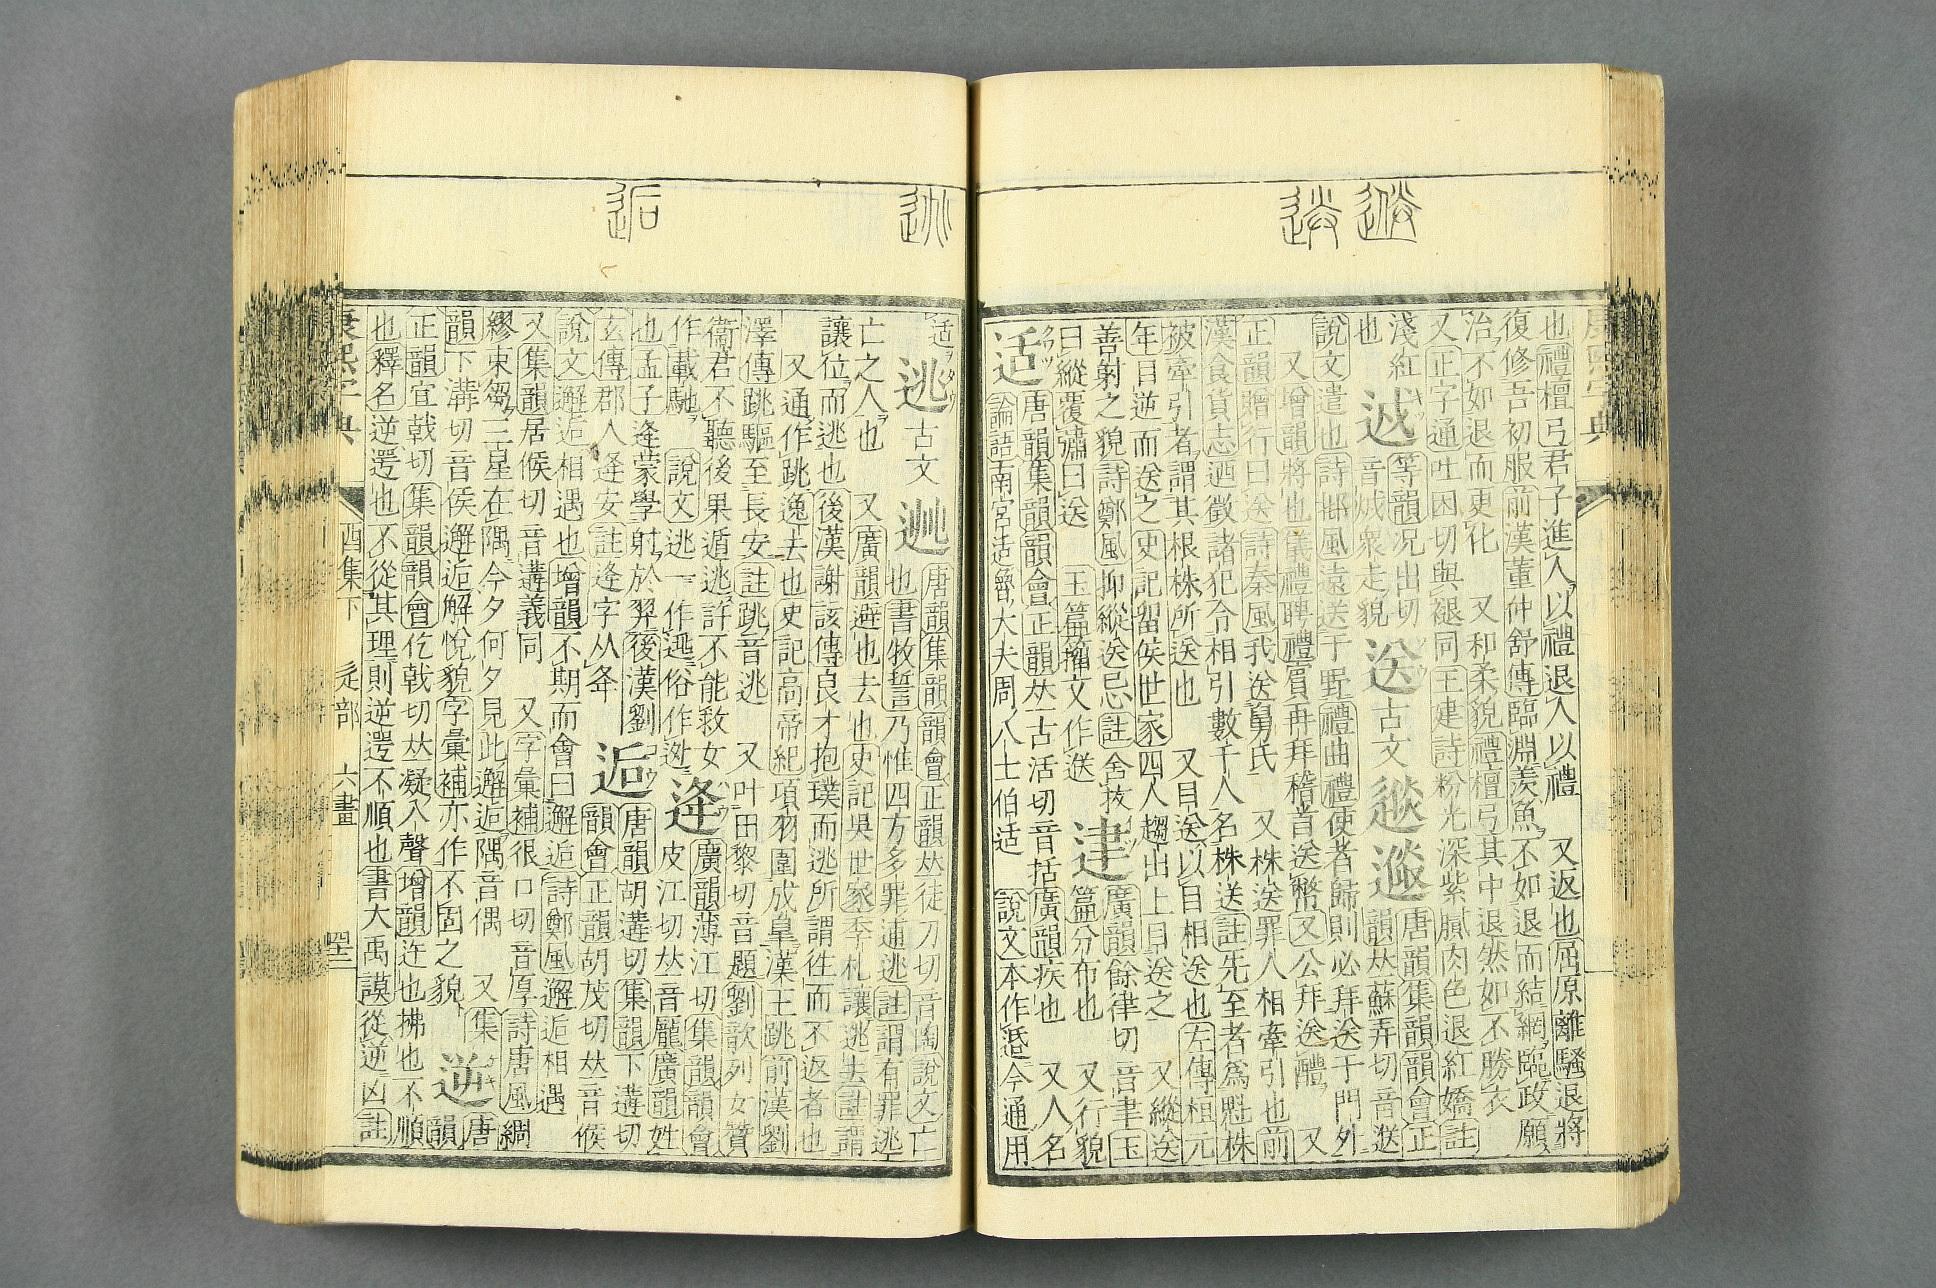 也禮檀弓君子進人以禮退人以禮 又返也屈原離騷退將
復修吾初服前漢董仲舒傳臨淵羨魚不如退而結網臨政願
治不如退而更化 又和柔貌禮檀弓其中退然如不勝衣
又正字通吐困切與褪同王建詩粉光深紫膩肉色退紅嬌註
淺紅
也
等韻況出切
音㶽眾走貌
送
古文
唐韻集韻韻會正
韻𠀤蘇弄切音𨓎
說文遣也詩邶風遠送于野禮曲禮使者歸則必拜送于門外
又增韻將也儀禮聘禮賓再拜稽首送幣又公拜送醴 又
正韻贈行曰送詩秦風我送舅氏 又株送罪人相牽引也前
漢食貨志迺徵諸犯令相引數千人名株送註先至者爲魁株
被牽引者謂其根株所送也 又目送以目相送也左傳桓元
年目逆而送之史記留侯世家四人趨出上目送之 又縱送
善射之貌詩鄭風抑縱送忌註舍拔
曰縱覆彇曰送 玉篇籀文作𨕄
廣韻餘律切音聿玉
篇分布也 又行貌
适
唐韻集韻韻會正韻𠀤古活切音括廣韻疾也 又人名
論語南宮适魯大夫周八士伯适 說文本作𨓈今通用
适
逃
古文
唐韻集韻韻會正韻𠀤徒刀切音陶說文亡
也書牧誓乃惟四方多罪逋逃註謂有罪逃
亡之人也 又廣韻避也去也史記吳世家季札讓逃去註謂
讓位而逃也後漢謝該傳良才抱璞而逃所謂往而不返者也
又通作跳逸去也史記高帝紀項羽圍成皋漢王跳前漢劉
澤傳跳驅至長安註跳音逃 又叶田黎切音題劉歆列女贊
衞君不聽後果遁逃許不能救女
作載馳 說文逃一作𨔛俗作迯
逄
皮江切𠀤音龐廣韻姓
廣韻薄江切集韻韻會
也孟子逄蒙學射於羿後漢劉
玄傳郡人逄安註逄字从夅
逅
唐韻胡遘切集韻下遘切
韻會正韻胡茂切𠀤音候
說文邂逅相遇也增韻不期而會曰邂逅詩鄭風邂逅相遇
又集韻居候切音遘義同 又字彙補很口切音厚詩唐風綢
繆束芻三星在隅今夕何夕見此邂逅隅音偶 又集
韻下溝切音侯邂逅解悅貌字彙補亦作不固之貌
逆
唐
韻
正韻宜戟切集韻韻會仡戟切𠀤凝入聲增韻迕也拂也不順
也釋名逆遻也不從其理則逆遻不順也書大禹謨從逆凶註
康熙字典
酉集下 辵部 六畫